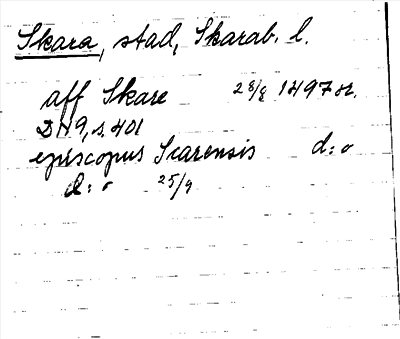 Skara, stad, Skarab. l.
aff Skare 28/8 1497 or.
DN 9, s. 401
episcopus Scarensis d:o
d:o 25/9